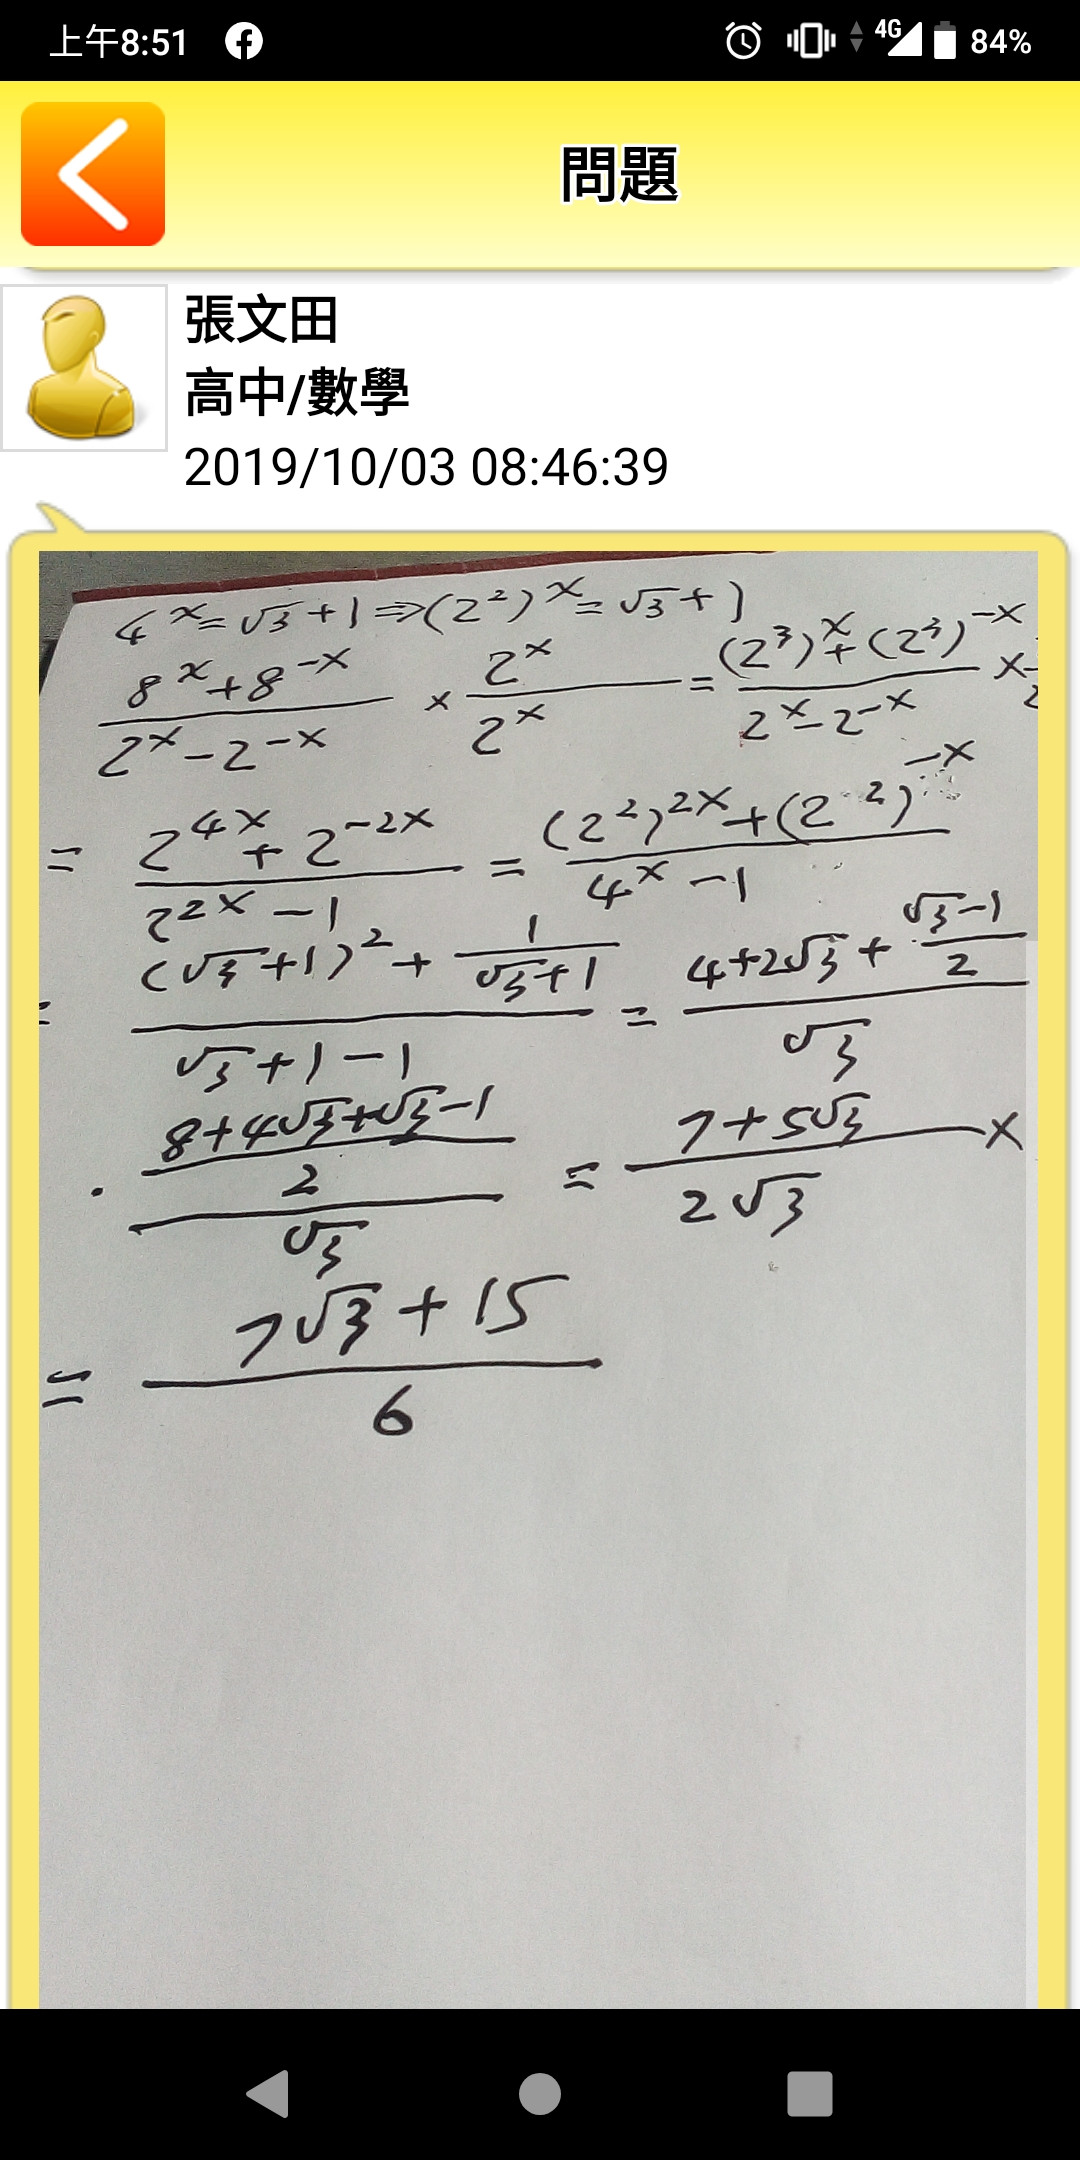 上午8:51 4G 84%
問題
張文田
高中/數學
2019/10/03 08:46:39
4^x=√3+1⇒(2²)^x=√3+1
(8^x+8^-x)/(2^x-2^-x) × 2^x/2^x = ((2³)^x+(2³)^-x)/(2^x-2^-x) ×
= (2^4x+2^-2x)/(2^2x-1) = ((2²)^2x+(2²)^-x)/(4^x-1)
= ((√3+1)²+1/(√3+1))/(√3+1-1) = (4+2√3+(√3-1)/2)/√3
((8+4√3+√3-1)/2)/√3 = (7+5√3)/(2√3) ×
= (7√3+15)/6